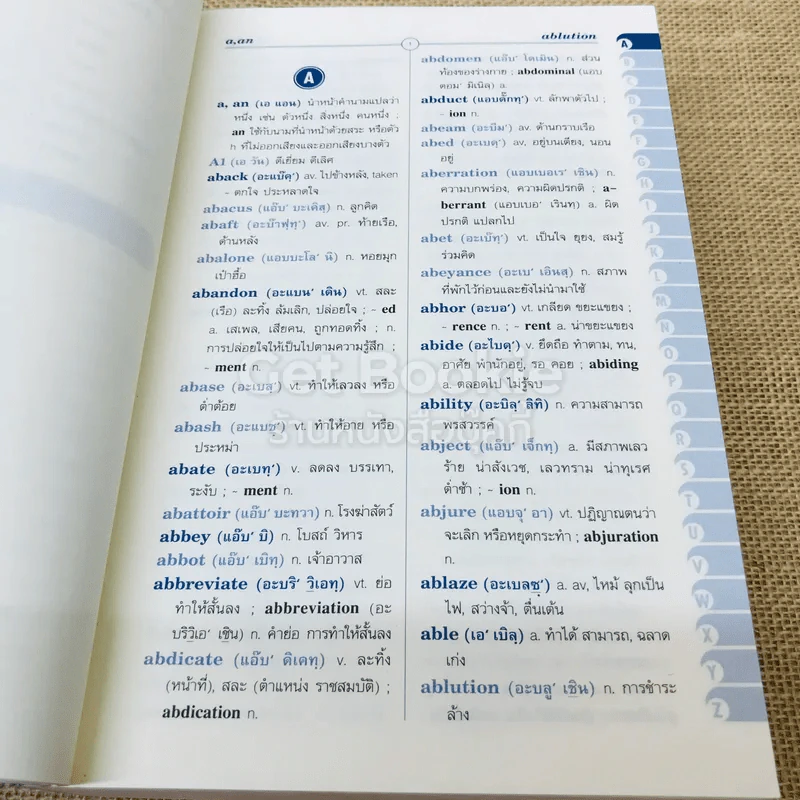 a,an
1
ablution
A
a, an (เอ แอน) นำหน้าคำนามแปลว่า
หนึ่ง เช่น ตัวหนึ่ง สิ่งหนึ่ง คนหนึ่ง ;
an ใช้กับนามที่นำหน้าด้วยสระ หรือตัว
h ที่ไม่ออกเสียงและออกเสียงบางตัว
A1 (เอ วัน) ดีเยี่ยม ดีเลิศ
aback (อะแบ๊คฺ') av. ไปข้างหลัง, taken
- ตกใจ ประหลาดใจ
abacus (แอ๊บ' บะเคิสฺ) n. ลูกคิด
abaft (อะบ๊าฟฺทฺ') av. pr. ท้ายเรือ,
ด้านหลัง
abalone (แอบบะโล' นิ) n. หอยมุก
เป๋าฮื้อ
abandon (อะแบน' เดิน) vt. สละ
(เรือ) ละทิ้ง ล้มเลิก, ปล่อยใจ ; - ed
a. เสเพล, เสียคน, ถูกทอดทิ้ง ; n.
การปล่อยใจให้เป็นไปตามความรู้สึก ;
- ment n.
abase (อะเบสฺ') vt. ทำให้เลวลง หรือ
ต่ำต้อย
abash (อะแบชฺ') vt. ทำให้อาย หรือ
ประหม่า
abate (อะเบทฺ') v. ลดลง บรรเทา,
ระงับ ; - ment n.
abattoir (แอ๊บ' บะทวา) n. โรงฆ่าสัตว์
abbey (แอ๊บ' บิ) n. โบสถ์ วิหาร
abbot (แอ๊บ' เบิทฺ) n. เจ้าอาวาส
abbreviate (อะบริ' วิเอทฺ) vt. ย่อ
ทำให้สั้นลง ; abbreviation (อะ
บริวิเอ' เชิน) n. คำย่อ การทำให้สั้นลง
abdicate (แอ๊บ' ดิเคทฺ) v. ละทิ้ง
(หน้าที่), สละ (ตำแหน่ง ราชสมบัติ) ;
abdication n.
abdomen (แอ๊บ' โดเมิน) n. ส่วน
ท้องของร่างกาย ; abdominal (แอบ
ดอม' มิเนิล) a.
abduct (แอบดั๊กทฺ') vt. ลักพาตัวไป ;
- ion n.
abeam (อะบีม') av. ด้านกราบเรือ
abed (อะเบดฺ') av. อยู่บนเตียง, นอน
อยู่
aberration (แอบเบอเร' เชิน) n.
ความบกพร่อง, ความผิดปรกติ ; a-
berrant (แอบเบอ' เรินทฺ) a. ผิด
ปรกติ แปลกไป
abet (อะเบ๊ทฺ') vt. เป็นใจ ยุยง, สมรู้
ร่วมคิด
abeyance (อะเบ' เอินสฺ) n. สภาพ
ที่พักไว้ก่อนและยังไม่นำมาใช้
abhor (อะบอ') vt. เกลียด ขยะแขยง ;
- rence n. ; - rent a. น่าขยะแขยง
abide (อะไบดฺ') v. ยึดถือ ทำตาม, ทน,
อาศัย พำนักอยู่, รอ คอย ; abiding
a. ตลอดไป ไม่รู้จบ
ability (อะบิลฺ' ลิทิ) n. ความสามารถ
พรสวรรค์
abject (แอ๊บ' เจ็กทฺ) a. มีสภาพเลว
ร้าย น่าสังเวช, เลวทราม น่าทุเรศ
ต่ำช้า ; - ion n.
abjure (แอบจุ' อา) vt. ปฏิญาณตนว่า
จะเลิก หรือหยุดกระทำ ; abjuration
n.
ablaze (อะเบลซฺ') a. av, ไหม้ ลุกเป็น
ไฟ, สว่างจ้า, ตื่นเต้น
able (เอ' เบิลฺ) a. ทำได้ สามารถ, ฉลาด
เก่ง
ablution (อะบลู' เชิน) n. การชำระ
ล้าง
A
B
C
D
E
F
G
H
I
J
K
L
M
N
O
P
Q
R
S
T
U
V
W
X
Y
Z
Get Bookie
ร้านหนังสือบุ๊กกี้